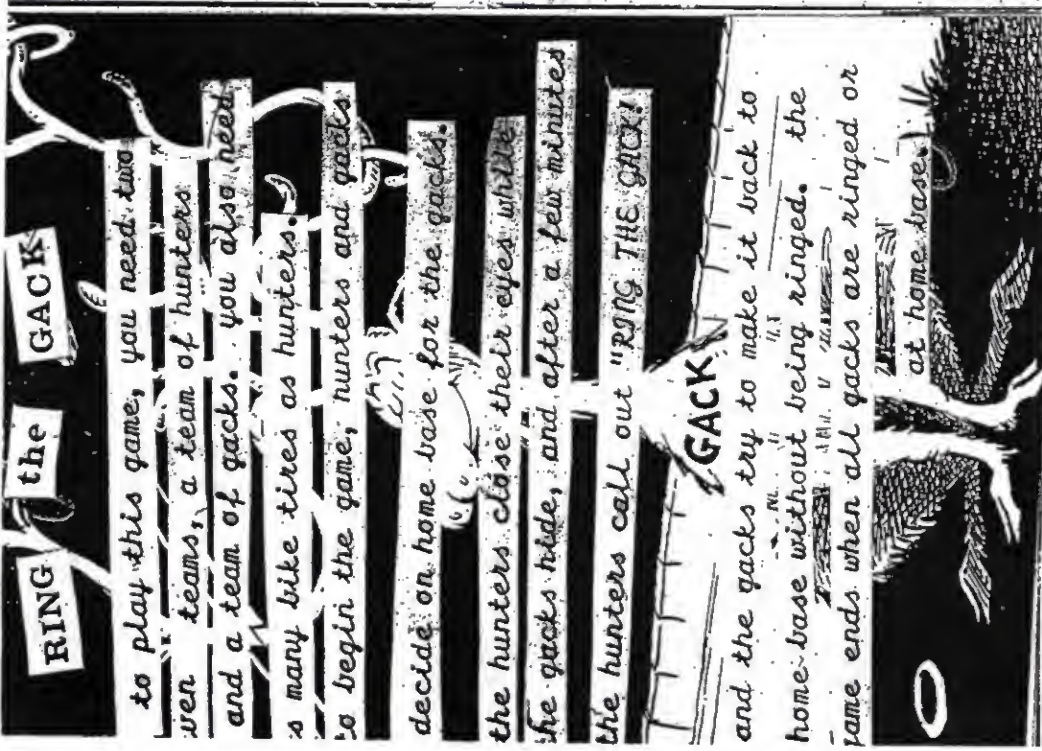 RING the GACK
to play this game, you need two
ven teams, a team of hunters
and a team of gacks. you also need
s many bike tires as hunters.
to begin the game, hunters and gacks
decide on home base for the gacks.
the hunters close their eyes while
the gacks hide, and after a few minutes
the hunters call out "RING THE GACK!
GACK
and the gacks try to make it back to
home base without being ringed. the
game ends when all gacks are ringed or
at home base.